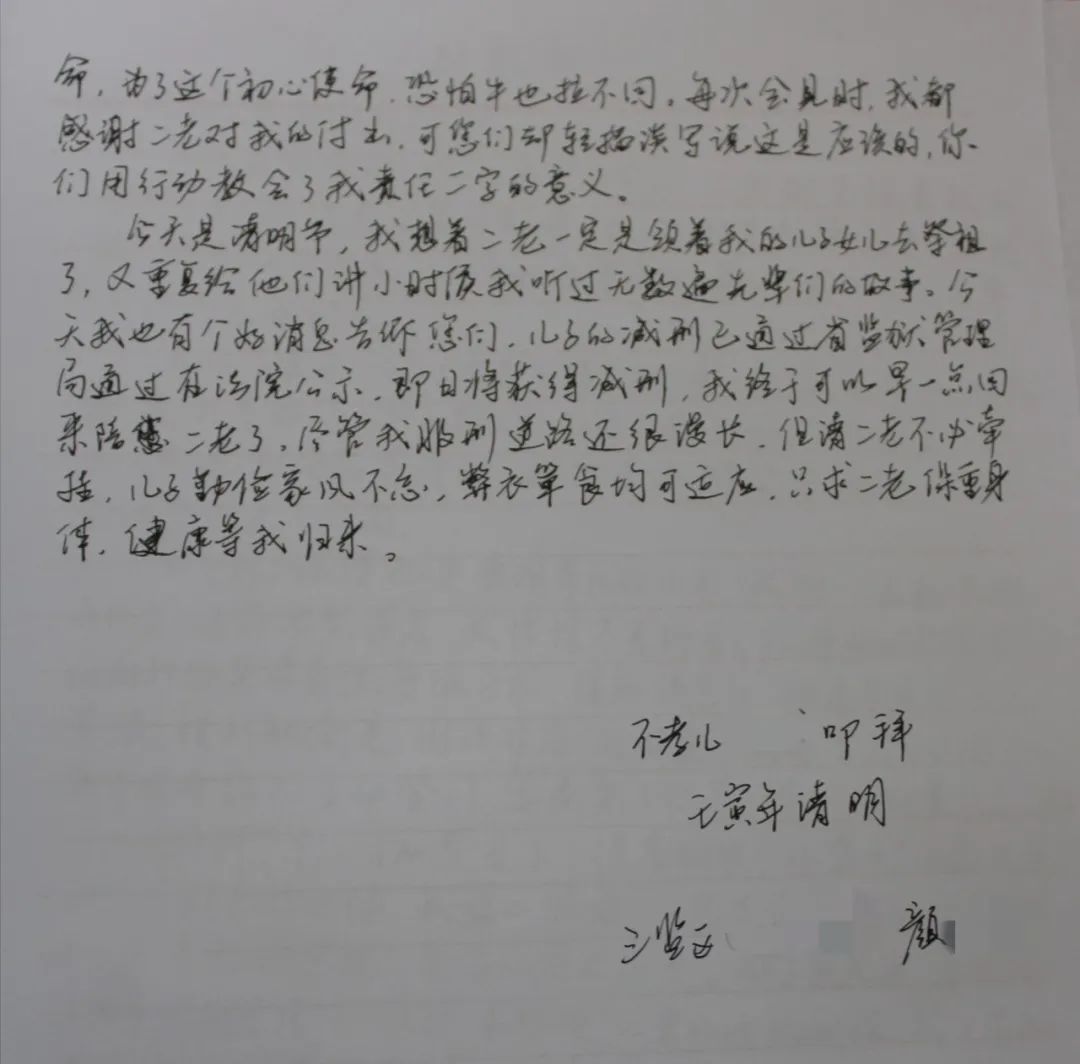 命，为了这个初心使命，恐怕牛也拉不回。每次会见时，我都
感谢二老对我的付出，可您们却轻描淡写说这是应该的，你
们用行动教会了我责任二字的意义。
今天是清明节，我想着二老一定是领着我的儿子女儿去祭祖
了，又重复给他们讲小时候我听过无数遍先辈们的故事。今
天我也有个好消息告诉您们，儿子的减刑已通过省监狱管理
局通过在法院公示，即日将获得减刑，我终于可以早一点回
来陪二老了。尽管我服刑道路还很漫长，但请二老不必牵
挂，儿子勤俭家风不忘，弊衣箪食均可适应，只求二老保重身
体，健康等我归来。
不孝儿 叩拜
壬寅年清明
三监区 颜